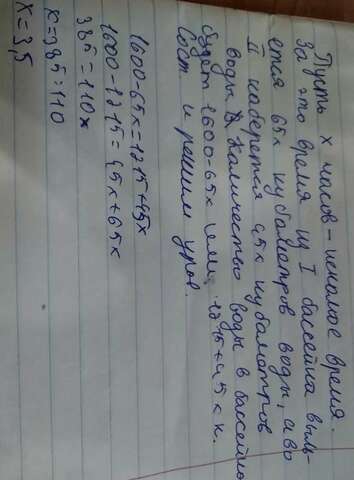 Пусть x часов - искомое время.
За это время из I бассейна выль-
ется 65x кубометров воды, а во
II наберется 45x кубометров
воды. Количество воды в бассейне
будет 1600-65x или 1215+45x к.
Сост и решим уров.
1600-65x=1215+45x
1600-1215=45x+65x
385=110x
x=385:110
x=3,5